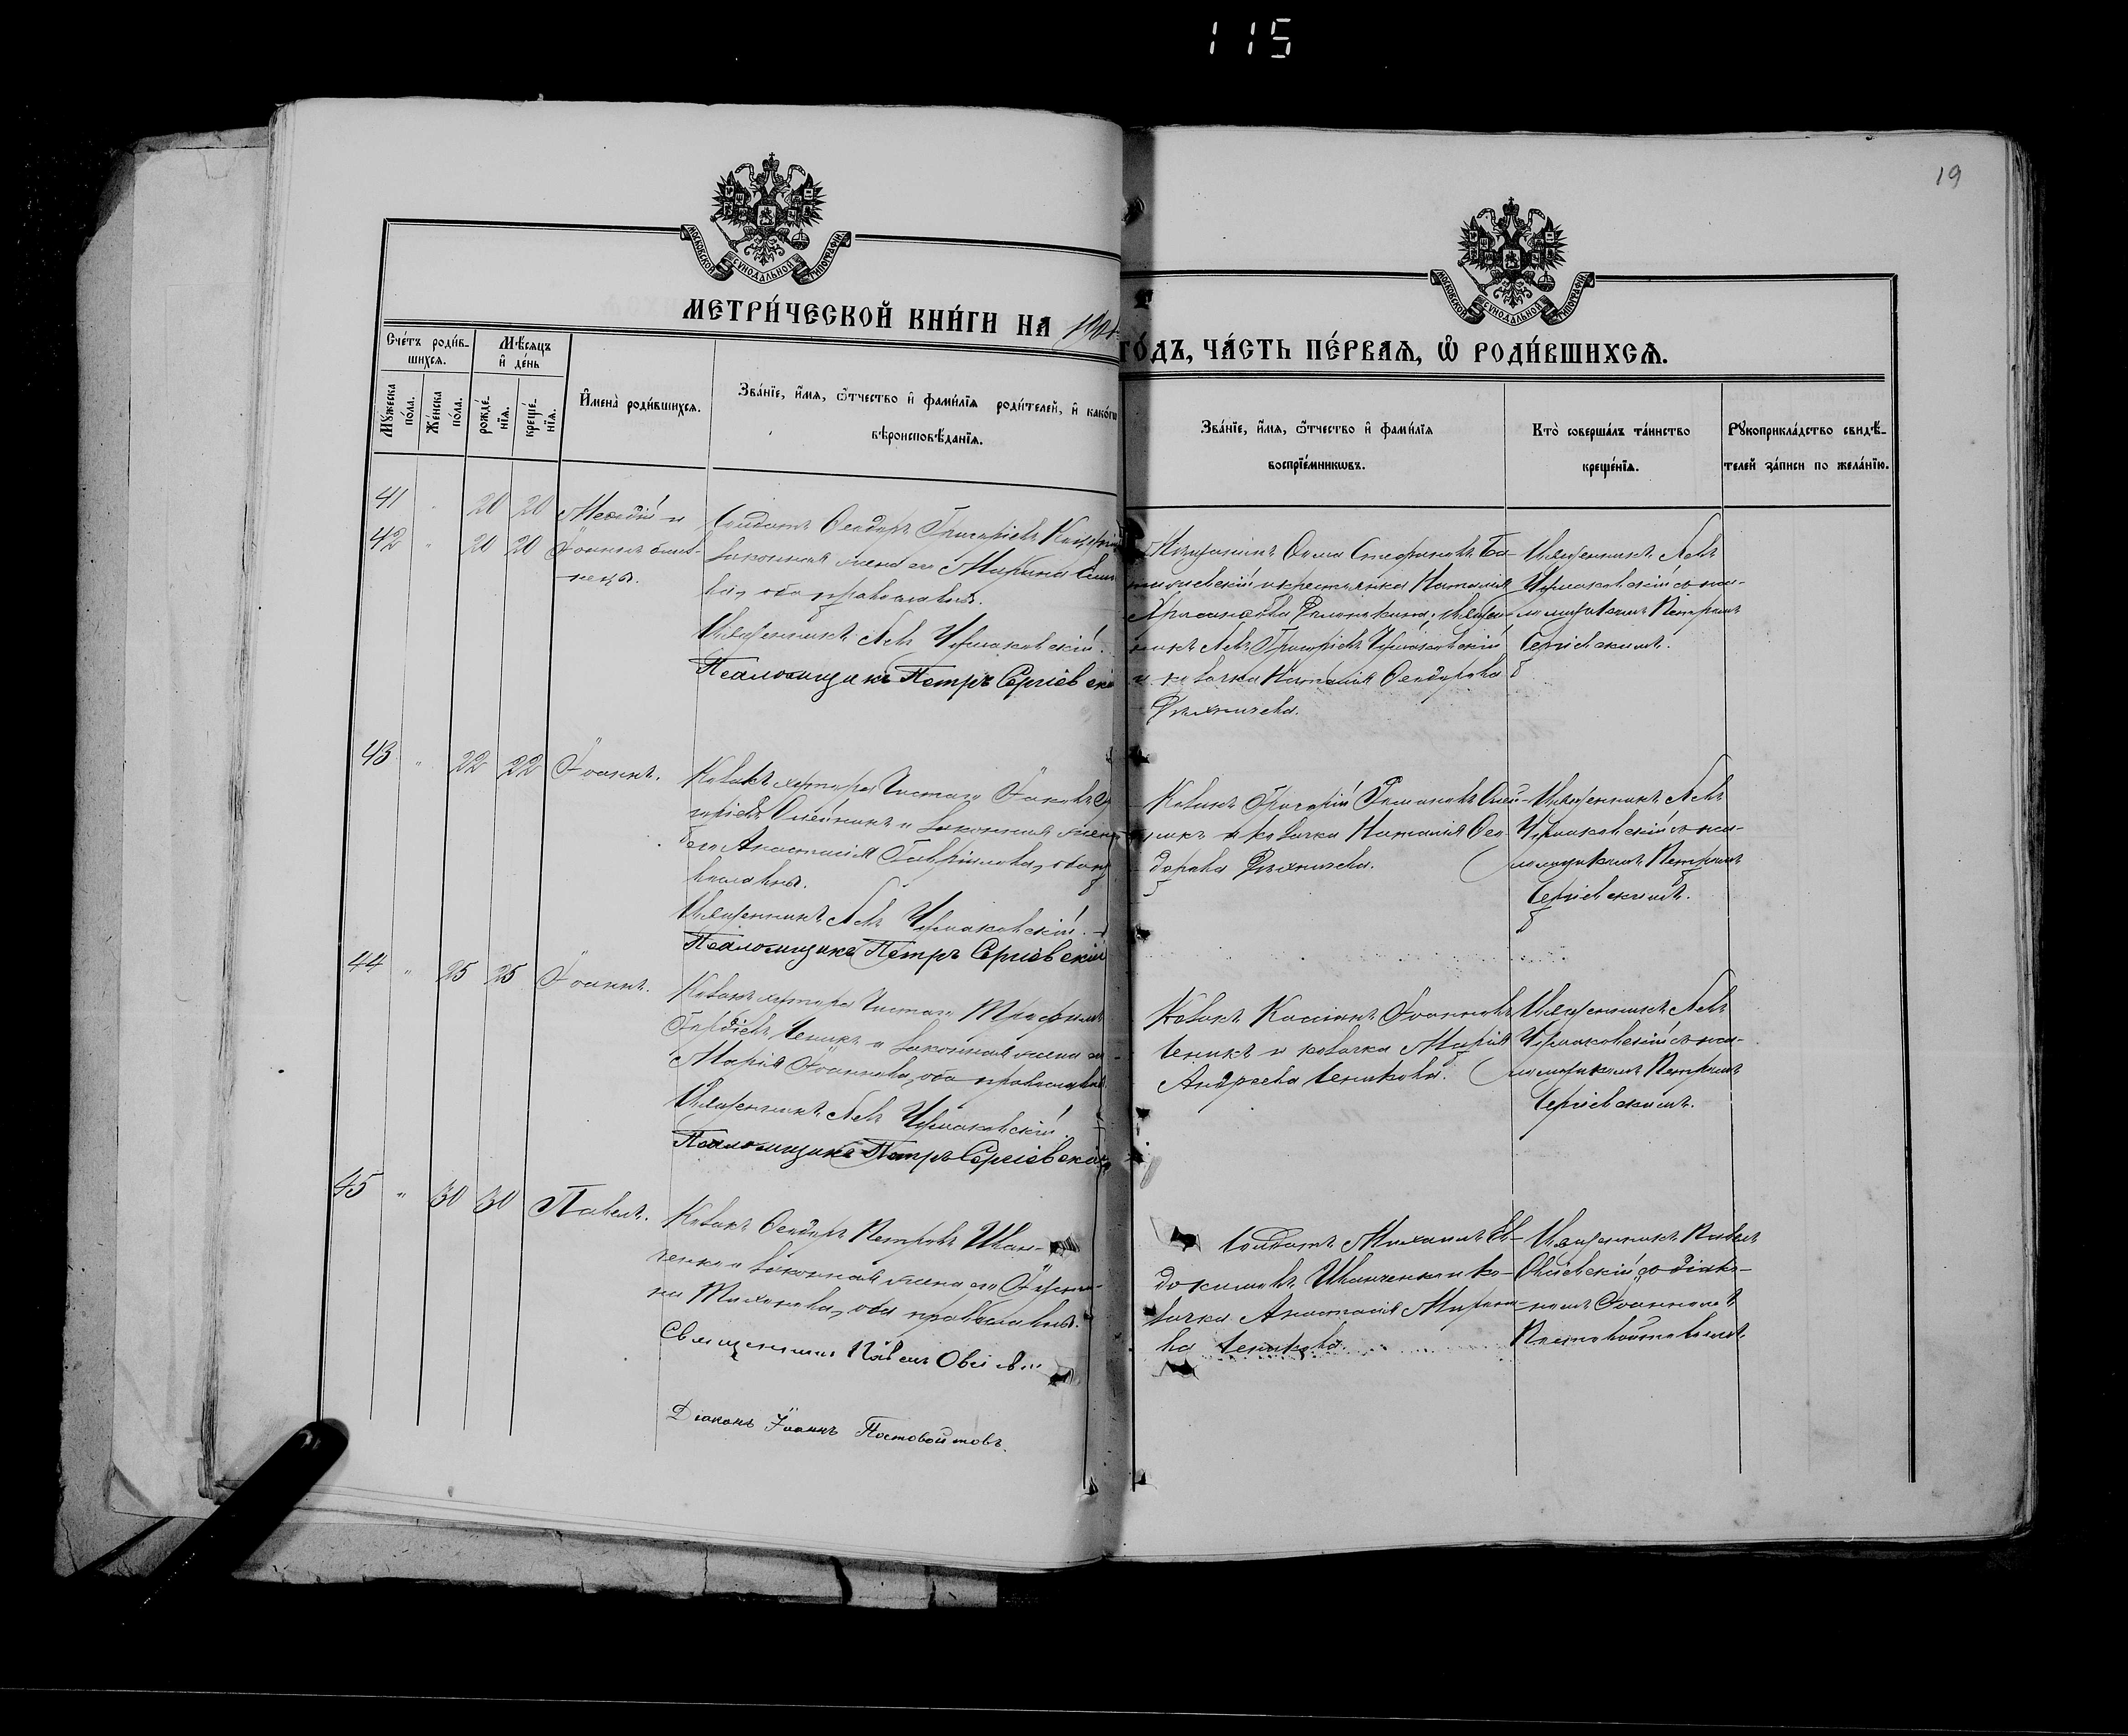 115
19
МОСКОВСКОЙ СѴНОДАЛЬНОЙ ТИПОГРАФІИ
МОСКОВСКОЙ СѴНОДАЛЬНОЙ ТИПОГРАФІИ
МЕТРИ́ЧЕСКОЙ КНИ́ГИ НА
ГО́ДЪ, ЧА́СТЬ ПЕ́РВАѦ, Ѡ҆ РОДИ́ВШИХСѦ.
Сче́тъ роди́в-
шихсѧ.
Мꙋ́жеска
по́ла.
Же́нска
по́ла.
Мѣ́сѧцъ
и҆ де́нь
рожде́-
нїѧ.
креще́-
нїѧ.
И҆мена̀ роди́вшихсѧ.
Зва́нїе, и҆́мѧ, ѻ҆́тчество и҆ фами́лїѧ роди́телей, и҆ како́гѡ
вѣроисповѣ́данїѧ.
Зва́нїе, и҆́мѧ, ѻ҆́тчество и҆ фами́лїѧ
воспрїе́мникѡвъ.
Кто̀ соверша́лъ та́инство
креще́нїѧ.
Рꙋкоприкла́дство свидѣ́-
телей за́писи по жела́нїю.
41 " 20 20 Меѳодій и
42 " 20 20 Іоаннъ близ-
нецы.
Солдатъ Ѳеодоръ Григорьевъ
законная жена его Марина
оба православны.
Священникъ Левъ Чермаковскій.
Псаломщикъ Петръ Сергіевскі
Мѣщанинъ Ѳома Стефановъ
и крестьянка Наталія
Священ-
никъ Левъ Григорьевъ Чермаковскій
и козачка Наталія Ѳеодорова
Священникъ Левъ
Чермаковскій съ пса-
ломщикомъ Петромъ
Сергіевскимъ.
43 " 22 22 Іоаннъ.
Козакъ хутора Чистаго Іаковъ
Олейникъ и законная жена
его Анастасія Гавріилова, оба пра
вославны.
Священникъ Левъ Чермаковскій.
Псаломщикъ Петръ Сергіевскій
Козакъ Григорій Романовъ Олей-
никъ и козачка Наталія Ѳео-
дорова
Священникъ Левъ
Чермаковскій съ пса-
ломщикомъ Петромъ
Сергіевскимъ.
44 " 25 25 Іоаннъ.
Козакъ хутора Чистаго Трофимъ
Гордіевъ Ченикъ и законная жена его
Марія Іоаннова, оба православны
Священникъ Левъ Чермаковскій.
Псаломщикъ Петръ Сергіевскій
Козакъ Кассіанъ Іоанновъ
Ченикъ и козачка Марія
Андреева Ченикова.
Священникъ Левъ
Чермаковскій съ пса-
ломщикомъ Петромъ
Сергіевскимъ.
45 " 30 30 Павелъ.
Козакъ Ѳеодоръ Петровъ Иван-
ченко и законная жена его
Тихонова, оба православны.
Священникъ Павелъ
Діаконъ Іоаннъ Постовойтовъ.
Солдатъ Михаилъ Ев-
докимовъ Иванченко и ко-
зачка Анастасія Мироно-
ва Ченикова.
Священникъ Павелъ
съ діако-
номъ Іоанномъ
Постовойтовымъ.